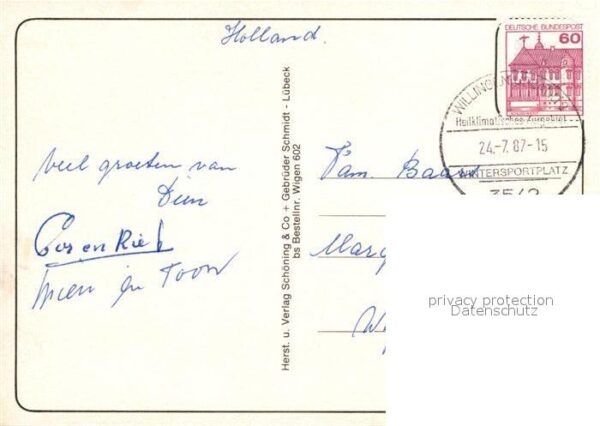 Holland.
DEUTSCHE BUNDESPOST
60
WILLINGEN
Heilklimatischer Kurort
24.-7. 87-15
WINTERSPORTPLATZ
3542
Veel groeten van
Dien
Cor en Rie
Mien en Toon
Herst. u. Verlag Schöning & Co + Gebrüder Schmidt - Lübeck
bs Bestellnr. Wigen 602
Fam. Baa
Marg
W
privacy protection
Datenschutz